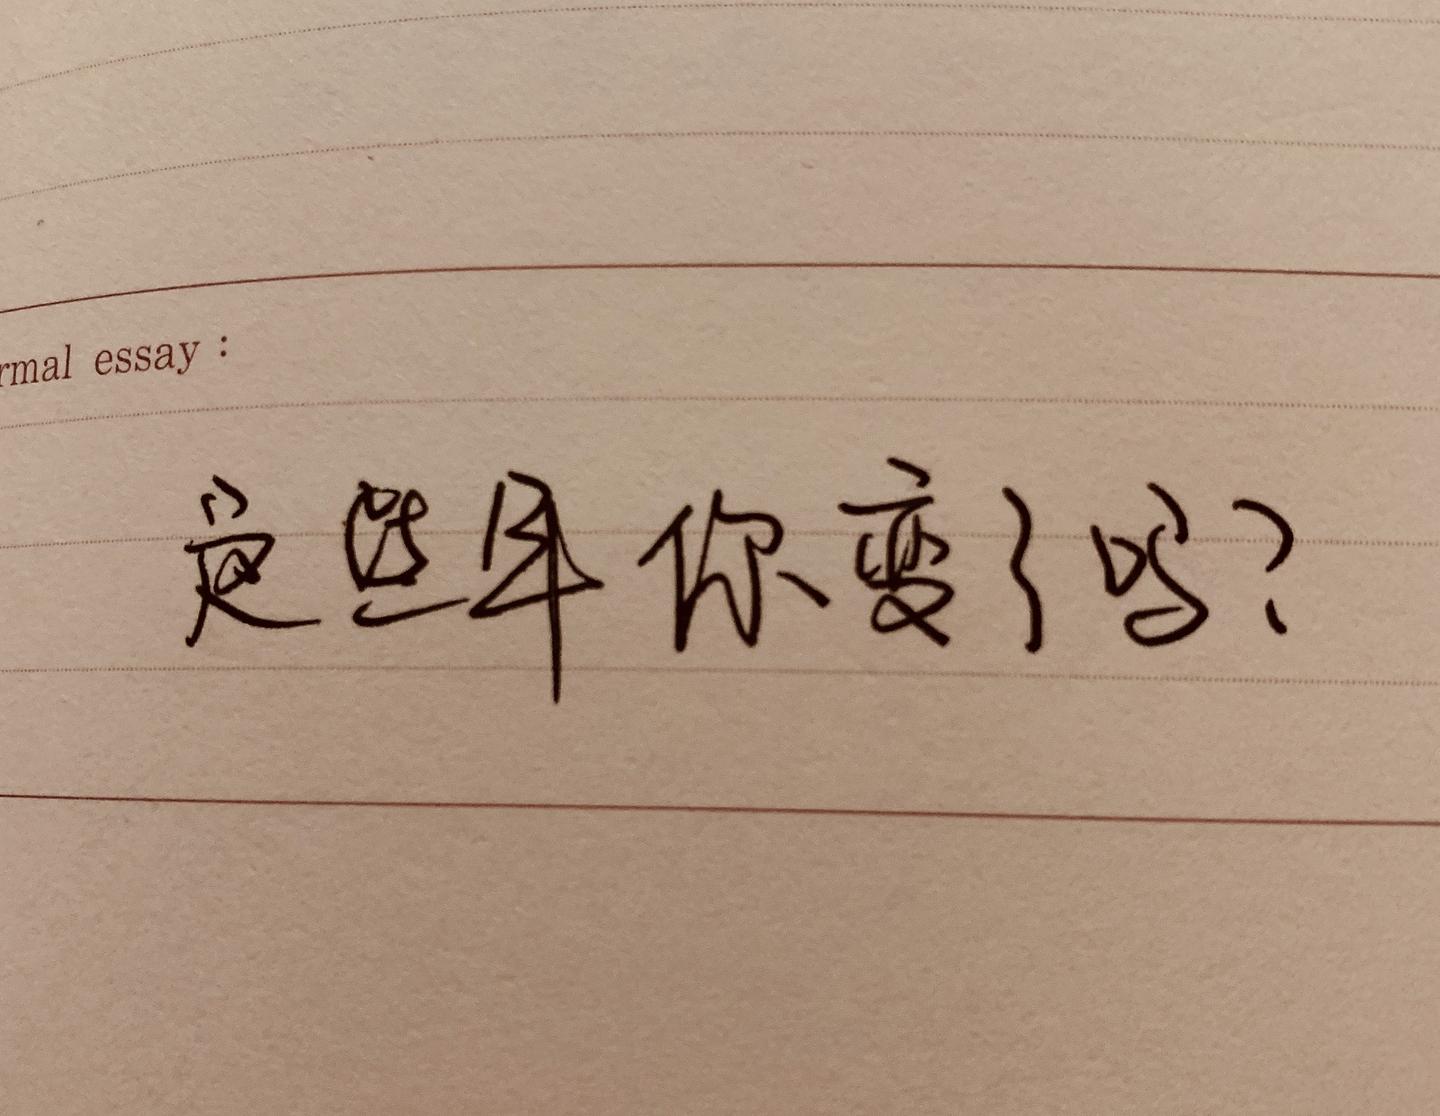 rmal essay :
这些年你变了吗？